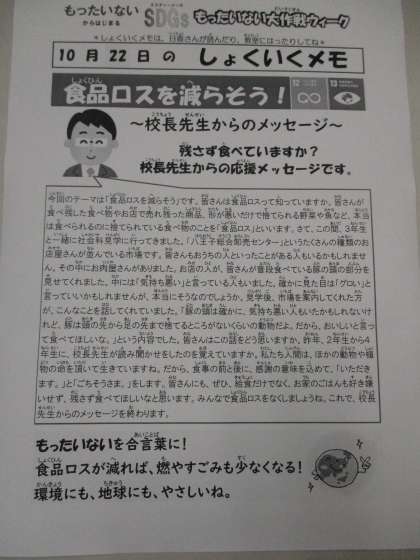 もったいない
からはじまる
SDGs
もったいない大作戦ウィーク
＊しょくいくメモは、日直さんが読んだり、教室にはったりしてね＊
10月22日の しょくいくメモ
食品ロスを減らそう！
12
13
～校長先生からのメッセージ～
残さず食べていますか？
校長先生からの応援メッセージです。
今回のテーマは「食品ロスを減らそう」です。皆さんは食品ロスって知っていますか。皆さんが
食べ残した食べ物やお店で売れ残った商品、形が悪いだけで捨てられる野菜や魚など、本当
は食べられるのに捨てられている食べ物のことを「食品ロス」といいます。さて、この間、3年生
と一緒に社会科見学に行ってきました。「八王子総合卸売センター」というたくさんの種類のお
店屋さんが並んでいる市場です。皆さんもおうちの人といったことがある人もいるかもしれませ
ん。その中にお肉屋さんがありました。お店の人が、皆さんが普段食べている豚の頭の部分を
見せてくれました。中には「気持ち悪い」と言っている人もいました。確かに見た目は「グロい」と
言っていいかもしれませんが、本当にそうなのでしょうか。見学後、市場を案内してくれた方
が、こんなことを話してくれていました。「豚の頭は確かに、気持ち悪い人もいたかもしれないけ
れど、豚は頭の先から足の先まで捨てるところがないくらいの動物だよ。だから、おいしいと言っ
て食べてほしいな。」という内容でした。皆さんはこの話をどう思いますか。昨年、2年生から4
年生に、校長先生が読み聞かせをしたのを覚えていますか。私たち人間は、ほかの動物や植
物の命を頂いて生きていますね。だから、食事の前と後に、感謝の意味を込めて、「いただき
ます。」と「ごちそうさま。」をします。皆さんにも、ぜひ、給食だけでなく、お家のごはんも好き嫌
いせず、残さず食べてほしいなと思います。みんなで食品ロスをなくしましょうね。これで、校長
先生からのメッセージを終わります。
もったいないを合言葉に！
食品ロスが減れば、燃やすごみも少なくなる！
環境にも、地球にも、やさしいね。